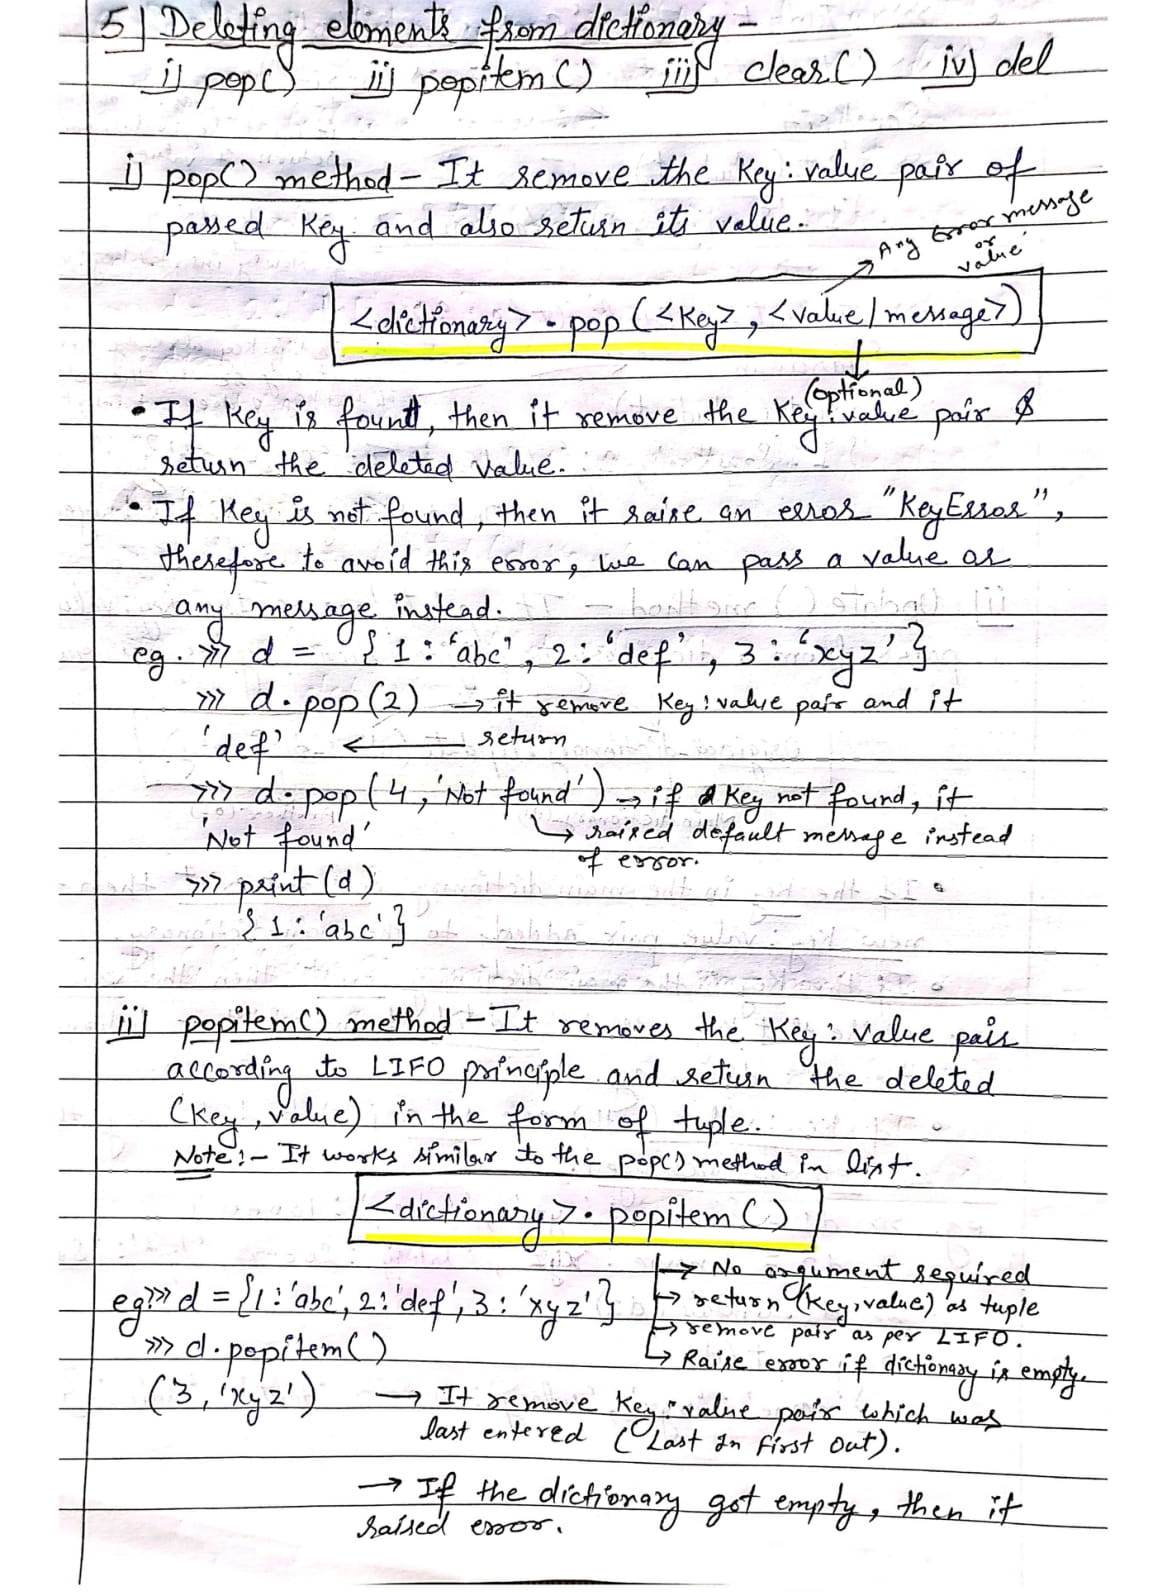 5) Deleting elements from dictionary -
i) pop() ii) popitem() iii) clear() iv) del
i) pop() method - It remove the key : value pair of
passed key and also return its value.
Any Error message
or
value
<dictionary>.pop(<key>, <value/message>)
(optional)
• If key is found, then it remove the key : value pair &
return the deleted value.
• If key is not found, then it raise an error "KeyError",
therefore to avoid this error, we can pass a value or
any message instead.
eg. >>> d = {1 : 'abc', 2 : 'def', 3 : 'xyz'}
>>> d.pop(2) → it remove key : value pair and it
'def' ← return
>>> d.pop(4, 'Not found') → if key not found, it
'Not found' ↳ raised default message instead
of error.
>>> print(d)
{1 : 'abc'}
ii) popitem() method - It removes the key : value pair
according to LIFO principle and return the deleted
(key, value) in the form of tuple.
Note :- It works similar to the pop() method in list.
<dictionary>.popitem()
→ No argument required
eg >>> d = {1 : 'abc', 2 : 'def', 3 : 'xyz'} → return (key, value) as tuple
→ remove pair as per LIFO.
>>> d.popitem() ↳ Raise error if dictionary is empty.
(3, 'xyz') → It remove key : value pair which was
last entered (Last In First Out).
→ If the dictionary got empty, then it
raised error.